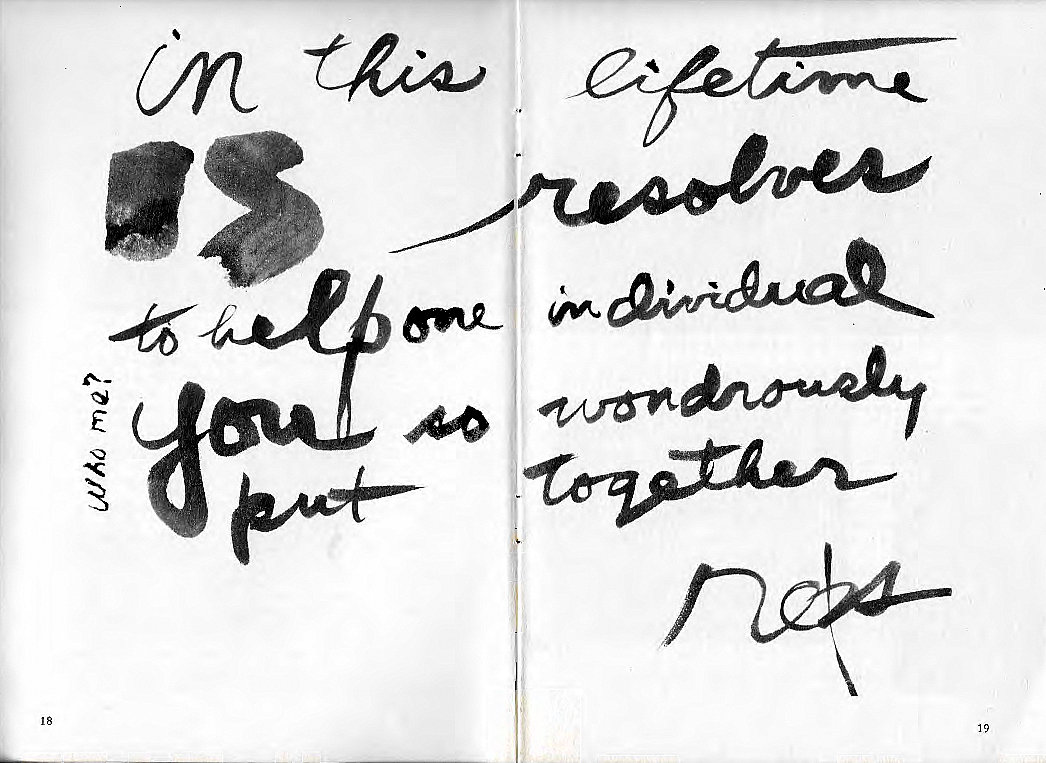 in this lifetime
IS resolves
to help one individual
Who me?
you so wondrously
put together
reps
18
19